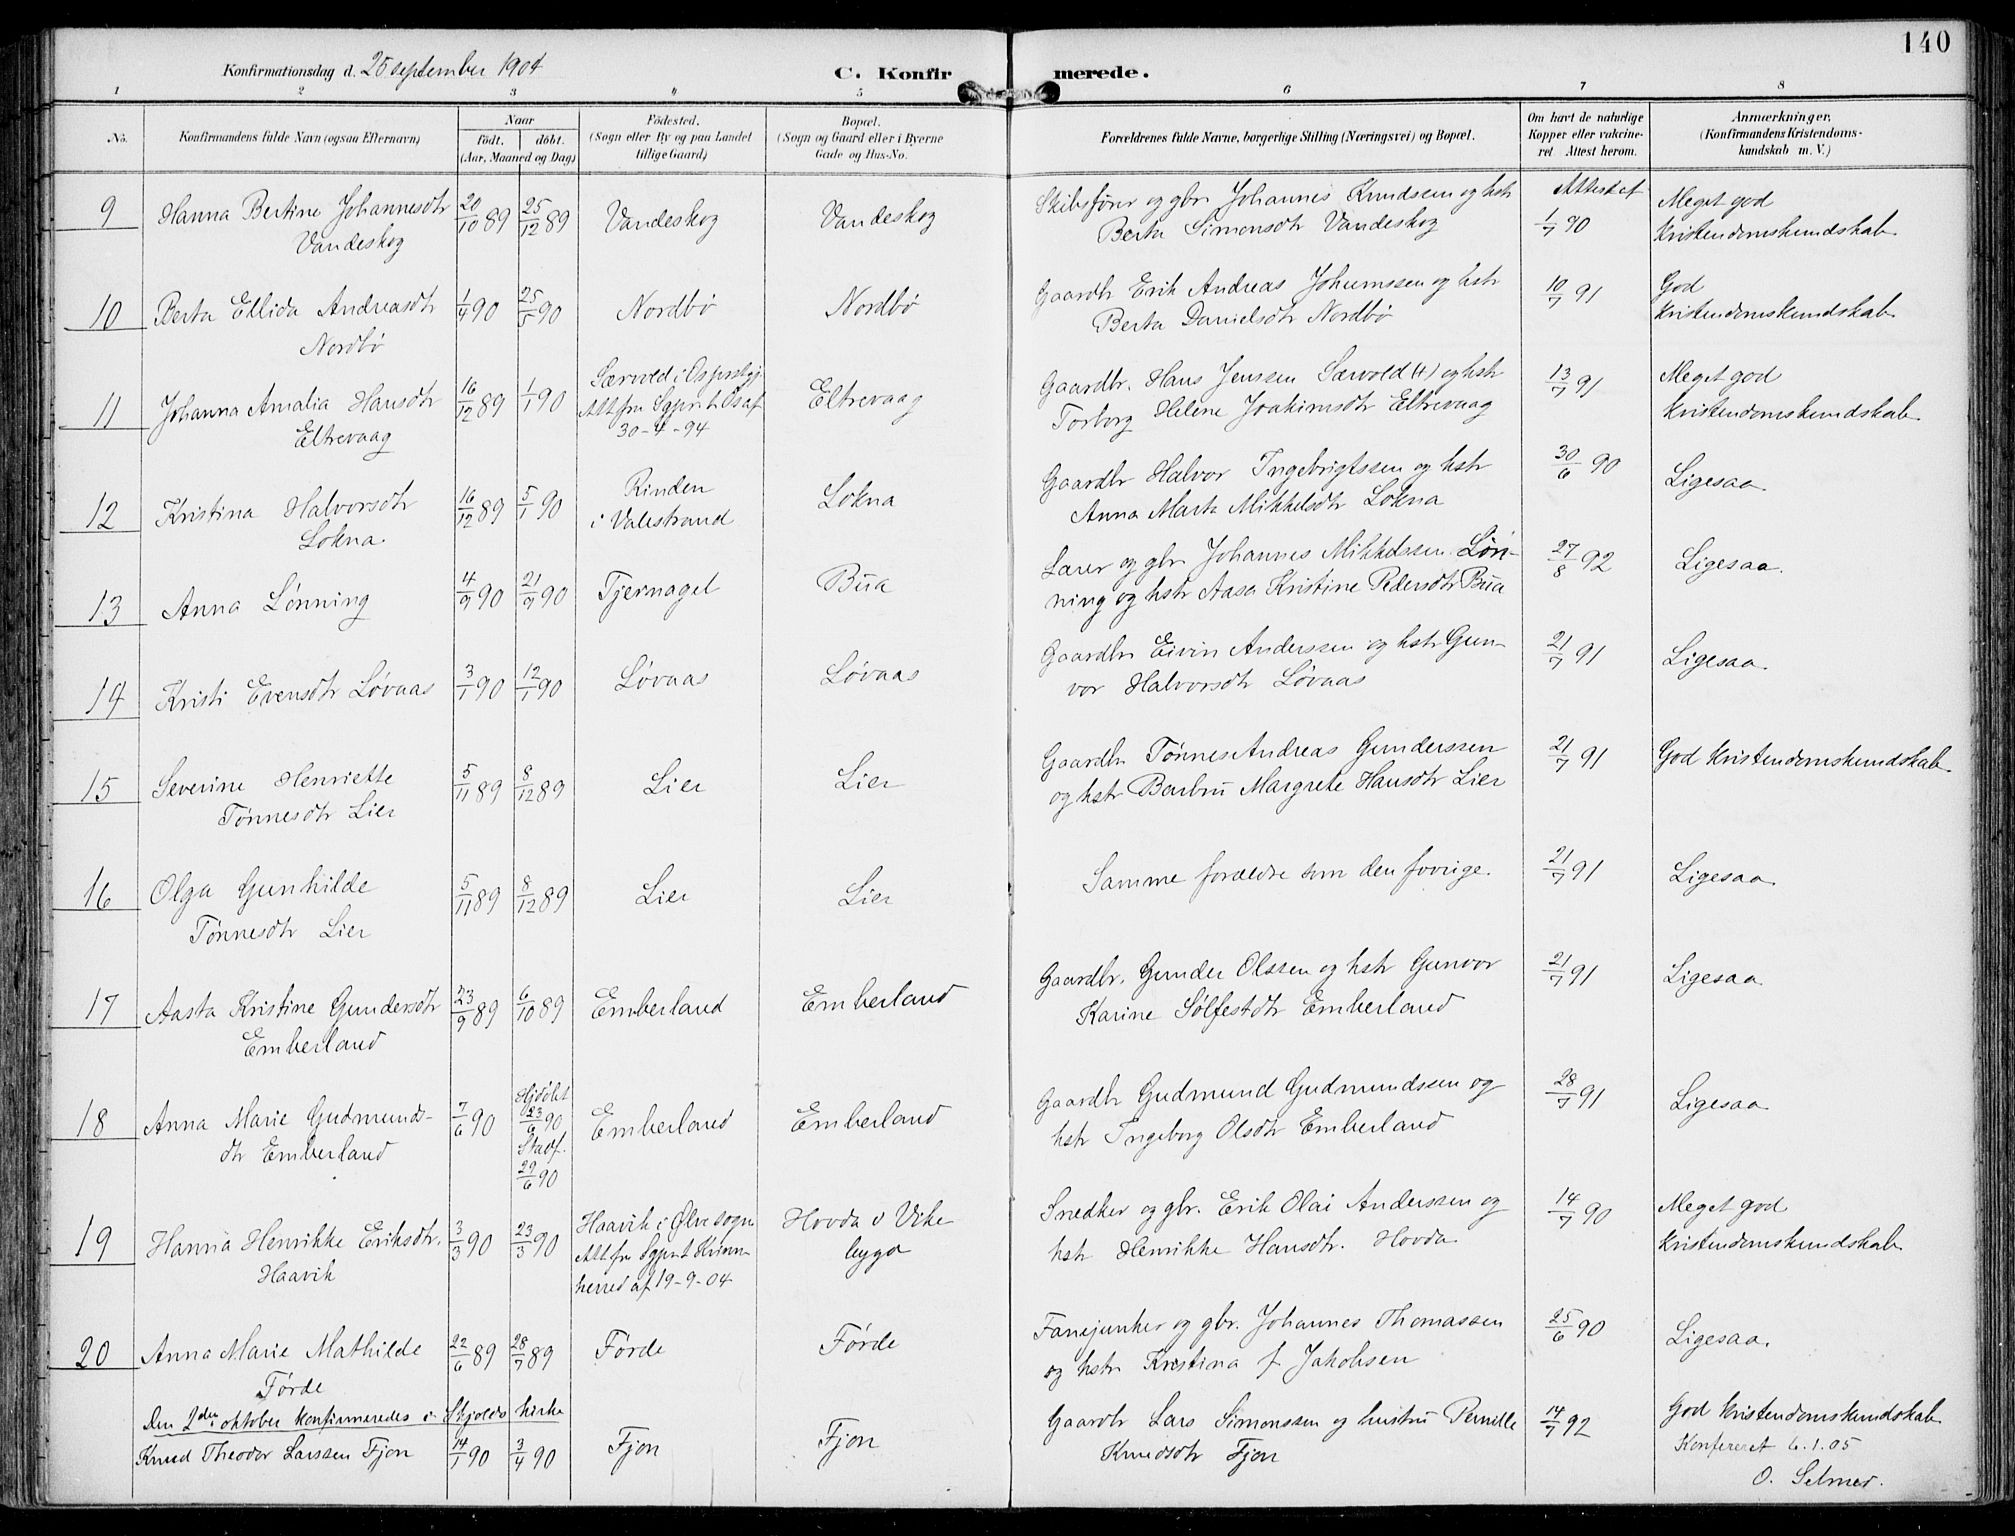 140
Konfirmationsdag d. 25 september 1904
C. Konfirmerede.
1 2 3 4 5 6 7 8
No. Konfirmandens fulde Navn (ogsaa Efternavn) Naar födt. döbt. (Aar, Maaned og Dag) Födested. (Sogn eller By og paa Landet tillige Gaard) Bopæl. (Sogn og Gaard eller i Byerne Gade og Hus-No. Forældrenes fulde Navne, borgerlige Stilling (Næringsvei) og Bopæl. Om havt de naturlige Kopper eller vakcineret. Attest herom. Anmærkninger. (Konfirmandens Kristendomskundskab m. V.)
9 Hanna Bertine Johannesdtr 20/10 89 25/12 89 Vandeskog Vandeskog Skibsfører og gbr. Johannes Knudssen og hstr Attest af 1/7 90 Meget god
Vandeskog Berta Simonsdtr Vandeskog Kristendomskundskab
10 Berta Ellida Andreasdtr 1/4 90 25/5 90 Nordbø Nordbø Gaardbr Erik Andreas Johannssen og hstr 10/7 91 God
Nordbø Berta Danielsdtr Nordbø Kristendomskundskab
11 Johanna Amalia Hansdtr 16/12 89 1/1 90 Særvold i Os prstgj. Eltrevaag Gaardbr. Hans Jenssen Sævold (†) og hstr 13/7 91 Meget god
Eltrevaag Att fra Sgprst. Os af Torborg Helene Joakimsdtr Eltrevaag Kristendomskundskab
30-4-94
12 Kristina Halvorsdtr 16/12 89 5/1 90 Rinden Lokna Gaardbr Halvor Ingebrigtssen og hstr 30/6 90 Ligesaa
Lokna i Valestrand Anna Marta Mikkelsdtr Lokna
13 Anna Lønning 4/9 90 21/9 90 Tjernagel Bua Lærer og gbr Johannes Mikkelssen Løn- 27/8 92 Ligesaa.
ning og hstr Aasa Kristine Pedersdtr Bua
14 Kristi Evensdtr Løvaas 3/1 90 12/1 90 Løvaas Løvaas Gaardbr Eivin Anderssen og hstr Gun- 21/7 91 Ligesaa.
vor Halvorsdtr Løvaas
15 Severine Henriette 5/11 89 8/12 89 Lier Lier Gaardbr Tønnes Andreas Gunderssen 21/7 91 God Kristendomskundskab
Tønnesdtr Lier og hstr Barbru Margrete Hansdtr Lier
16 Olga Gunhilde 5/11 89 8/12 89 Lier Lier Samme forældre som den forrige. 21/7 91 Ligesaa
Tønnesdtr Lier
17 Aasta Kristine Gundersdtr 23/9 89 6/10 89 Emberland Emberland Gaardbr. Gunder Olssen og hstr Gunvor 21/7 91 Ligesaa
Emberland Karine Sølfestdtr Emberland
18 Anna Marie Gudmunds- 7/6 90 Hjdøbt 23/6 90 Stadf. 29/6 90 Emberland Emberland Gaardbr Gudmund Gudmundssen og 28/7 91 Ligesaa
dtr Emberland hstr Ingeborg Olsdtr Emberland
19 Hanna Henrikke Eriksdtr. 3/3 90 23/3 90 Haavik i Ølve sogn Hovda i Vike Snedker og gbr. Erik Olai Anderssen og 14/7 90 Meget god
Haavik Att fra Sgprst Kvinn- bygd hstr Henrikke Hansdtr. Hovda Kristendomskundskab
herred af 19-9-04
20 Anna Marie Mathilde 22/6 89 28/7 89 Førde Førde Fanejunker og gbr. Johannes Thomassen 25/6 90 Ligesaa.
Førde og hstr Kristina f Jakobsen
Den 2den oktober konfirmeredes i Skjolds kirke
Knud Theodor Larssen Fjon 14/1 90 3/4 90 Fjon Fjon Gaardbr Lars Simonssen og hustru Pernille 14/7 92 God Kristendomskundskab
Knudsdtr Fjon Konfereret 6.1.05
O. Selmer.